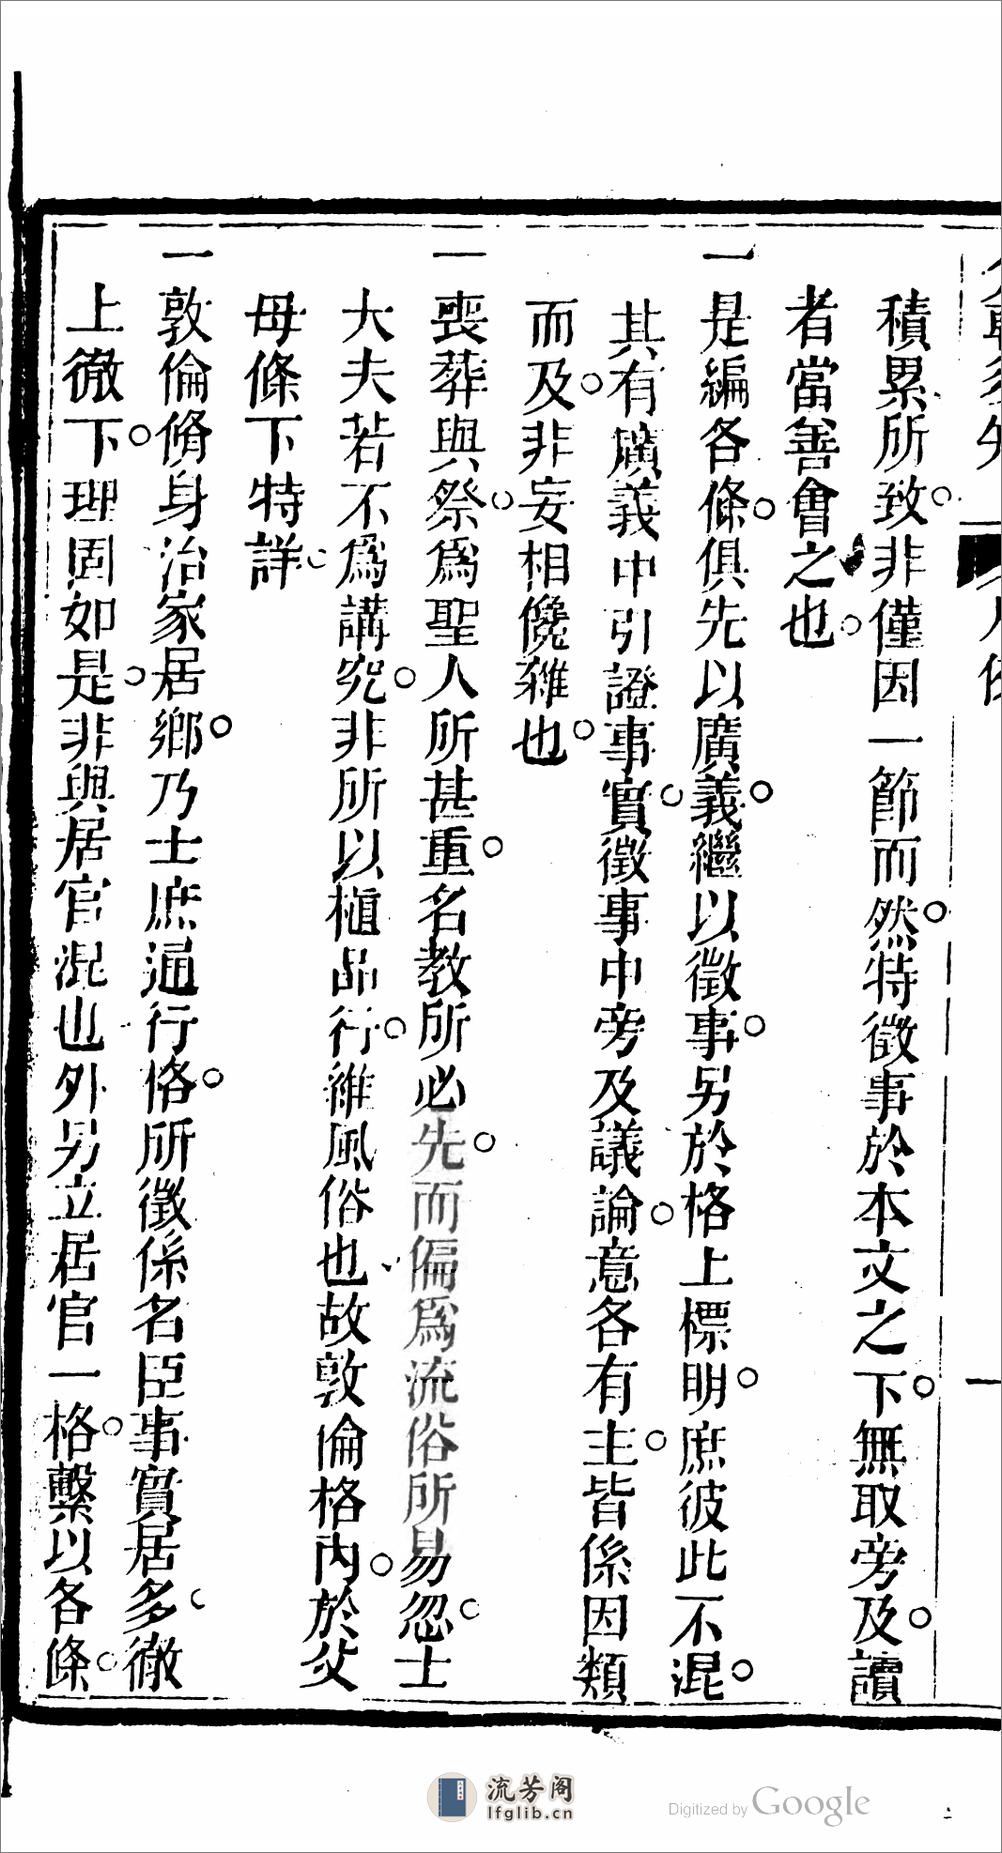 積累所致。非僅因一節而然。特徵事於本文之下。無取旁及。讀
者當善會之也。
一是編各條。俱先以廣義。繼以徵事。另於格上標明。庶彼此不混。
其有廣義中引證事實。徵事中旁及議論。意各有主。皆係因類
而及。非妄相儳雜也。
一喪葬與祭。爲聖人所甚重。名教所必先。而偏爲流俗所易忽。士
大夫若不爲講究。非所以植品行。維風俗也。故敦倫格內。於父
母條下特詳。
一敦倫脩身治家居鄉。乃士庶通行。俻所徵係名臣事實居多。徹
上徹下。理固如是。非與居官混也。外另立居官一格。繫以各條。
流芳阁
lfglib.cn
Digitized by Google